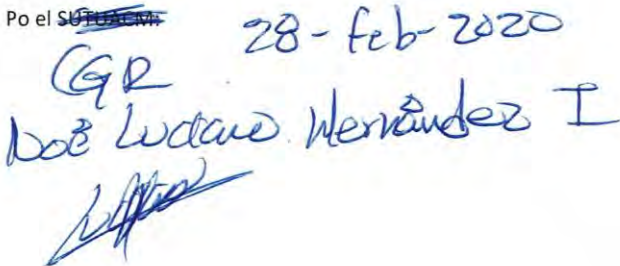 Po el SUTUACM: 28-feb-2020
CGR
Noé Luciano Hernández I